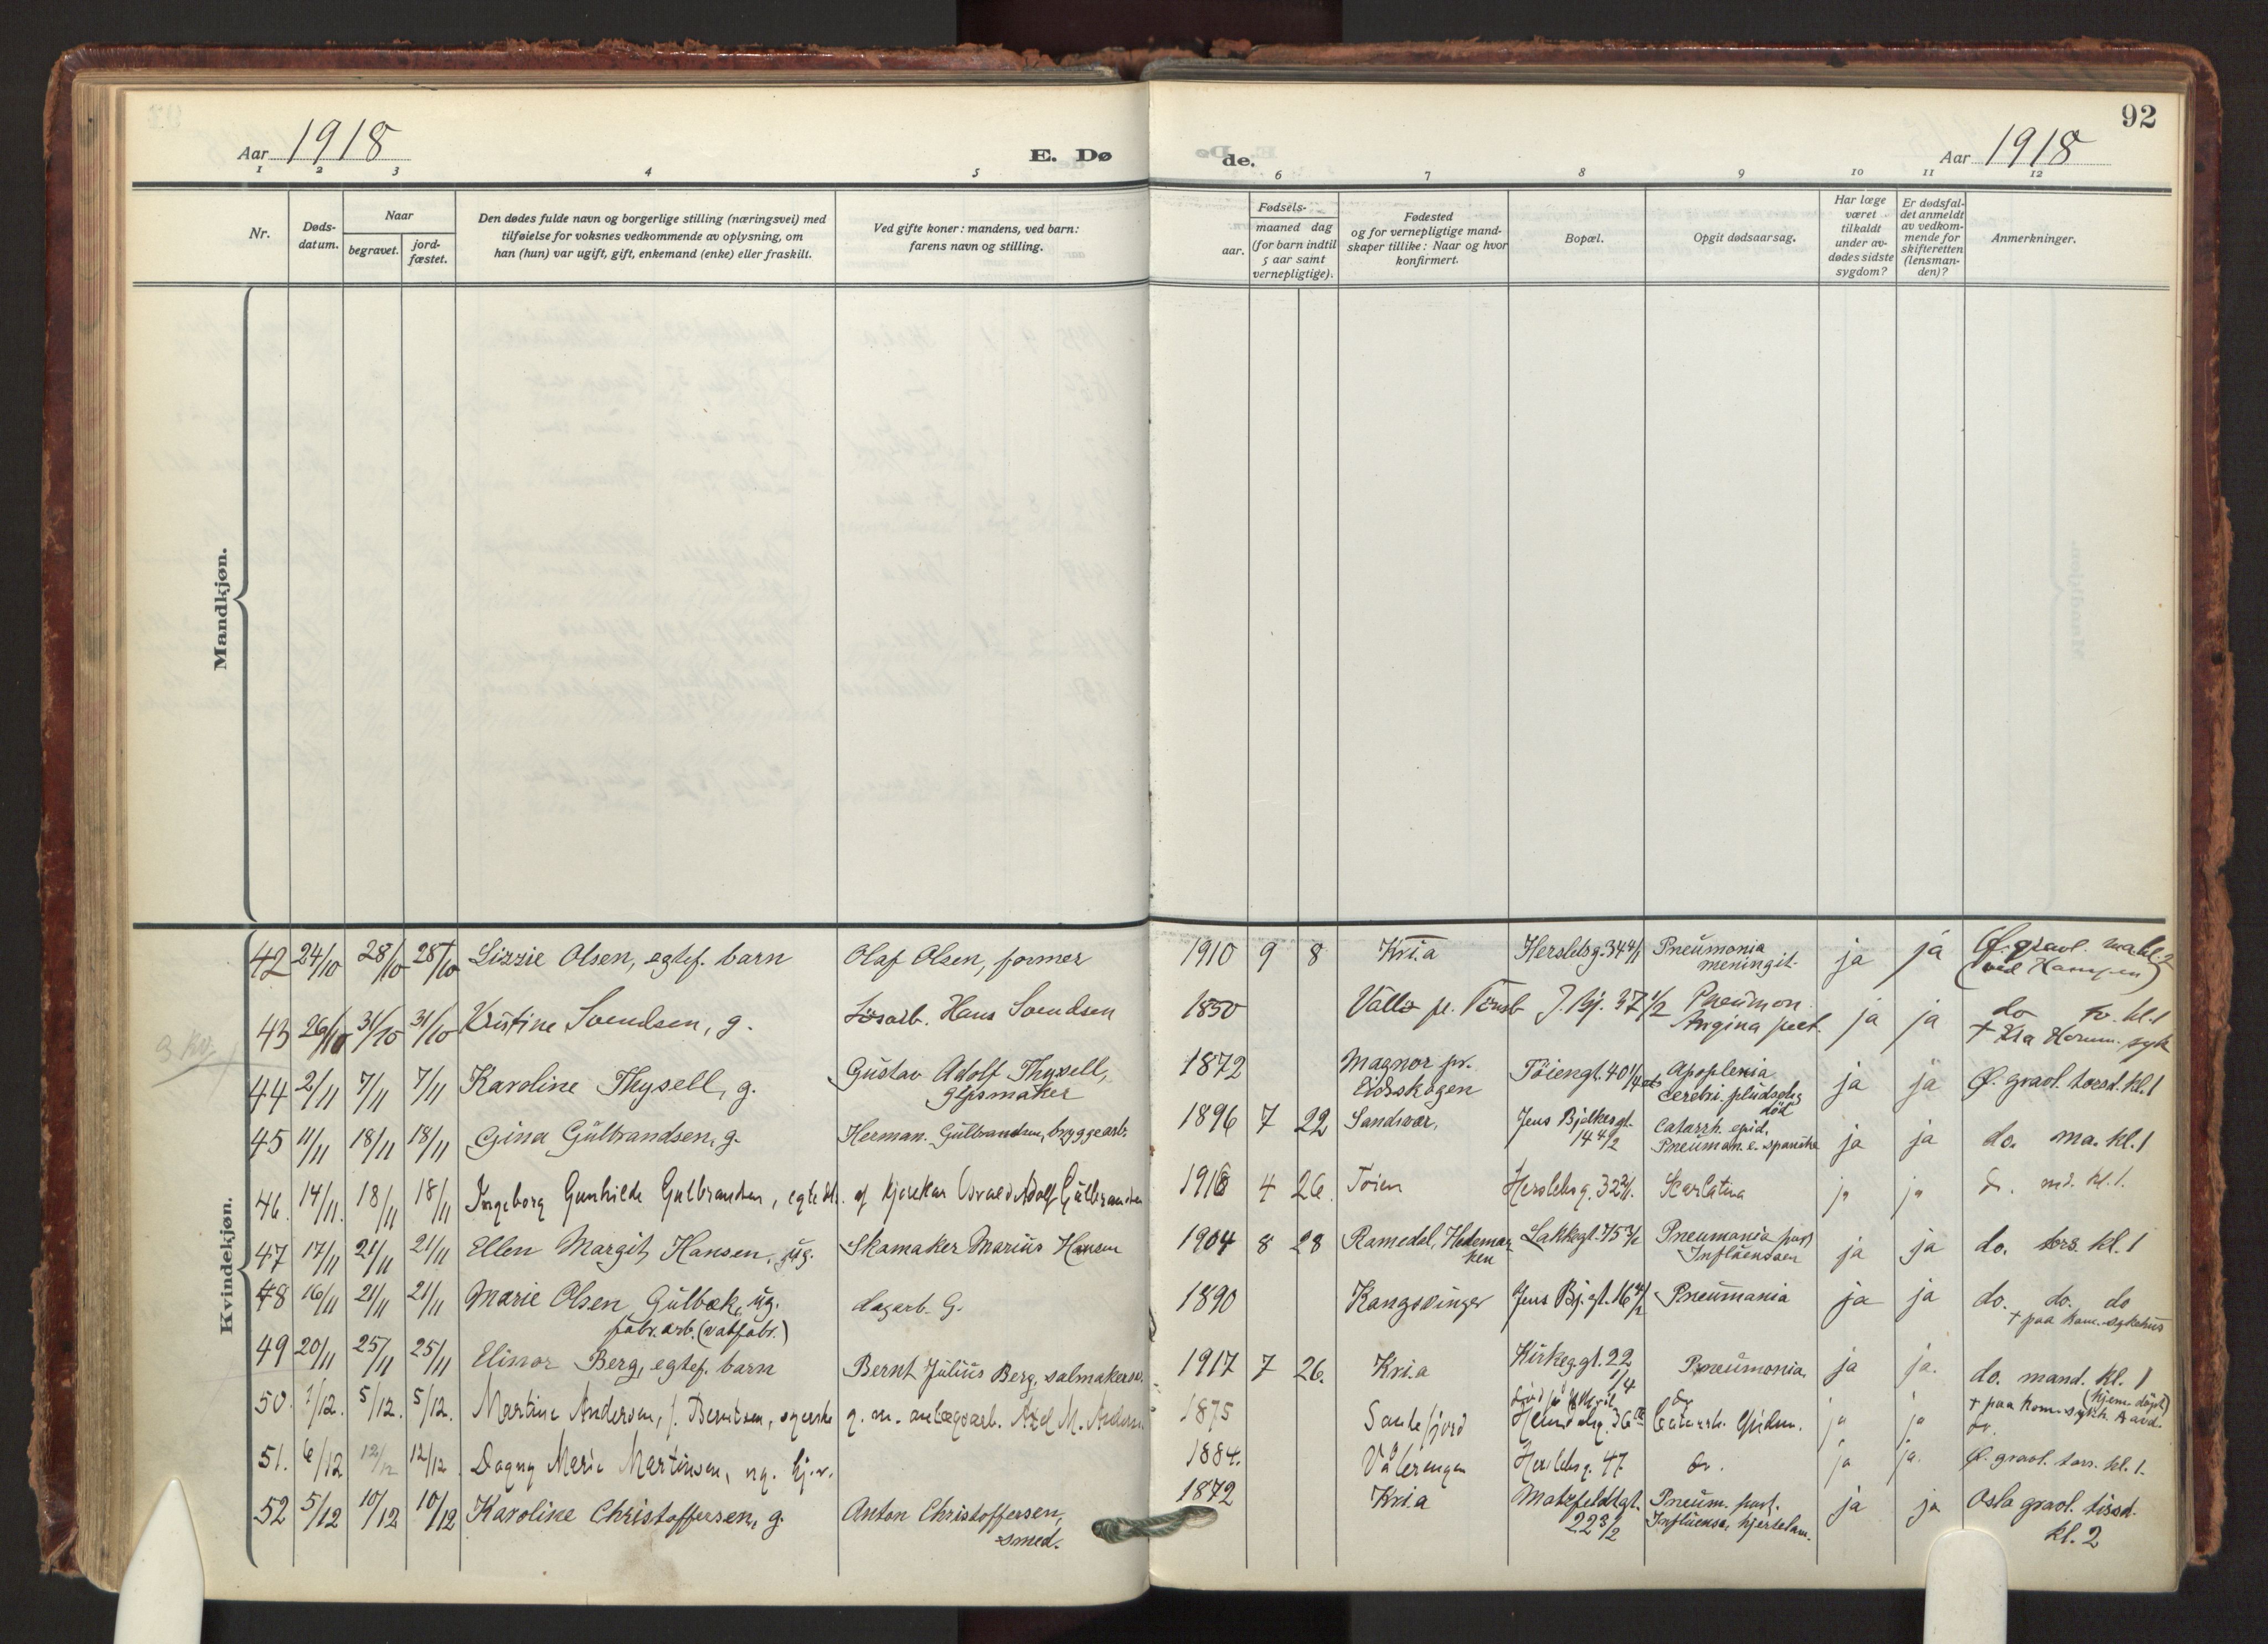 92
Aar 1918
E. Dø
de.
Aar 1918
1 2 3 4 5 6 7 8 9 10 11 12
Nr.
Døds-
datum.
Naar
begravet.
jord-
fæstet.
Den dødes fulde navn og borgerlige stilling (næringsvei) med
tilføielse for voksnes vedkommende av oplysning, om
han (hun) var ugift, gift, enkemand (enke) eller fraskilt.
Ved gifte koner: mandens, ved barn:
farens navn og stilling.
Fødsels-
aar.
maaned dag
(for barn indtil
5 aar samt
vernepligtige).
Fødested
og for vernepligtige mand-
skaper tillike: Naar og hvor
konfirmert.
Bopæl.
Opgit dødsaarsag.
Har læge
været
tilkaldt
under av-
dødes sidste
sygdom?
Er dødsfal-
det anmeldt
av vedkom-
mende for
skifteretten
(lensman-
den)?
Anmerkninger.
Mandkjøn.
Kvindekjøn.
3. kv.
42 24/10 28/10 28/10 Lizzie Olsen, egtef. barn Olaf Olsen, former 1910 9 8 Kr.i.a Herslebsg. 34 4/1 Pneumonia
meningit. ja ja Ø. gravl. kl. 2
(ved Kampen)
43 26/10 31/10 31/10 Kristine Svendsen, g. Løsarb. Hans Svendsen 1850 Vallø pr. Tønsb J. Bj. 37 1/2 Pneumon.
Angina pect. ja ja do kl. 1
44 2/11 7/11 7/11 Karoline Thysell, g. Gustav Adolf Thysell,
gipsmaker 1872 Magnor pr.
Eidsskogen Töiengt. 40 1/4 Apoplexia
cerebri. pludselig
död ja ja Ø. gravl. torsd. kl. 1
45 11/11 18/11 18/11 Gina Gulbrandsen, g. Herman Gulbrandsen, bryggearb. 1896 7 22 Sandsvær, Jens Bjelkesgt.
14 4/2 Catarrh. epid.
Pneumon. e. spanske ja ja do. ma. kl. 1
46. 14/11. 18/11 18/11 Ingeborg Gunhilde Gulbrandsen, egte dtr. af kjørekar Osvald Adolf Gulbrandsen 1918 4 26. Töien Herslebsg. 32 Skarlatina ja ja do. md. kl. 1.
47 17/11 21/11 21/11 Ellen Margit Hansen, ug. Skomaker Marius Hansen 1904 8 28 Ramedal, Hedemar-
ken Lakkegt. 75 3/1 Pneumonia post
Influensaen ja ja do. tors. kl. 1
48 16/11 21/11 21/11 Marie Olsen Gulbæk, ug.
fabr. arb. (vatfabr.) dagarb. G. 1890 Kongsvinger Jens Bj. gt. 16 4/1 Pneumonia ja ja do. do. do
+ paa kom. sykehus
49 20/11 25/11 25/11 Elinor Berg, egtef. barn Bernt Julius Berg, salmakersv. 1917 7 26. Kr.i.a Kirkeg. gt. 22
1/4 Pneumonia ja ja. do. mand. kl. 1
(hjem. døpt)
50. 1/12. 5/12. 5/12. Martine Andersen, f. Berntsen, syerske g. m. anlægsarb. Axel M. Andersen 1875 Sandefjord Heimdalsg. 36 Catarrh. Epidem. ja ja + paa kom. sykh. Aavd.
do.
51. 6/12 12/12 12/12 Dagny Marie Martinsen, ug. 1884. Vålerengen Herslebsg. 47 do. ja ja. Ø. gravl. tors. kl. 1.
52 5/12 10/12 10/12 Karoline Christoffersen, g. Anton Christoffersen,
smed. 1872 Kr.i.a Motzfeldtsgt.
22 3/2 Pneum. post.
Influensa, hjertelam. ja ja Oslo gravl. tissd.
kl. 2